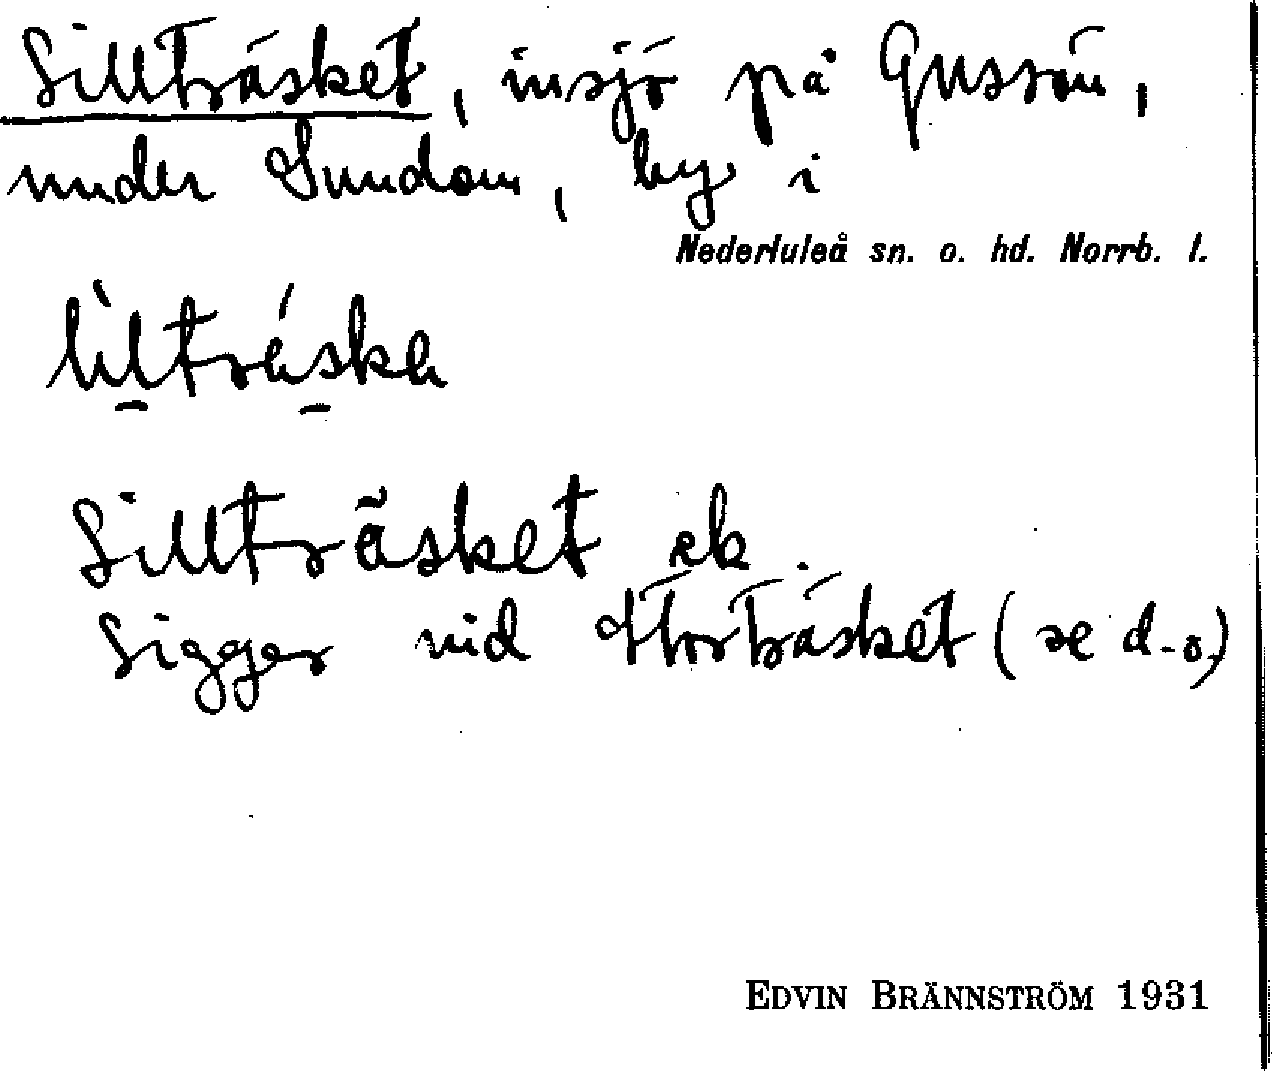 Sillträsket, insjö på Gussön,
under Sundom, by i
Nederluleå sn. o. hd. Norrb. l.
Sillträsket ek.
Sigger vid Storträsket (se d. o.)
EDVIN BRÄNNSTRÖM 1931